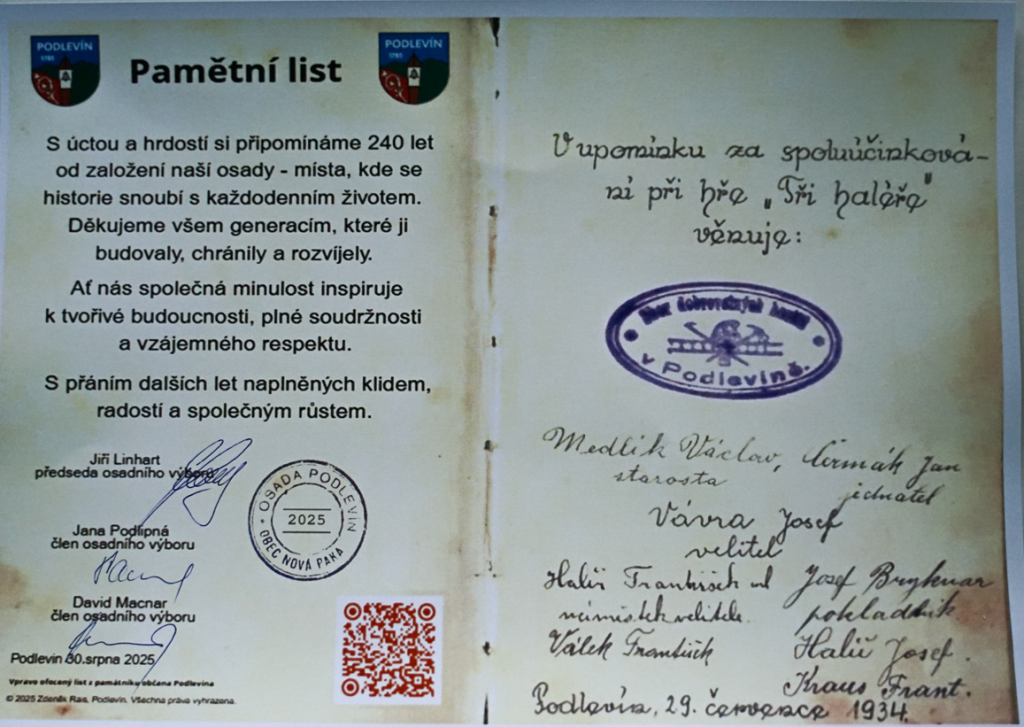 PODLEVÍN
1785
Pamětní list
PODLEVÍN
1785
S úctou a hrdostí si připomínáme 240 let
od založení naší osady - místa, kde se
historie snoubí s každodenním životem.
Děkujeme všem generacím, které ji
budovaly, chránily a rozvíjely.
Ať nás společná minulost inspiruje
k tvořivé budoucnosti, plné soudržnosti
a vzájemného respektu.
S přáním dalších let naplněných klidem,
radostí a společným růstem.
Jiří Linhart
předseda osadního výboru
Jana Podlipná
člen osadního výboru
David Macnar
člen osadního výboru
Podlevín 30.srpna 2025
OSADA PODLEVÍN
2025
OBEC NOVÁ PAKA
Vpravo ofocený list z památníku občana Podlevína
© 2025 Zdeněk Rais, Podlevín. Všechna práva vyhrazena.
V upomínku za spoluúčinková-
ní při hře „Tři haléře"
věnuje:
Sbor dobrovolných hasičů
v Podlevíně.
Medlík Václav, Čermák Jan
starosta jednatel
Vávra Josef
velitel
Halíř František ml Josef
náměstek velitele. pokladník.
Válek František Halíř Josef.
Kraus Frant.
Podlevín, 29. července 1934